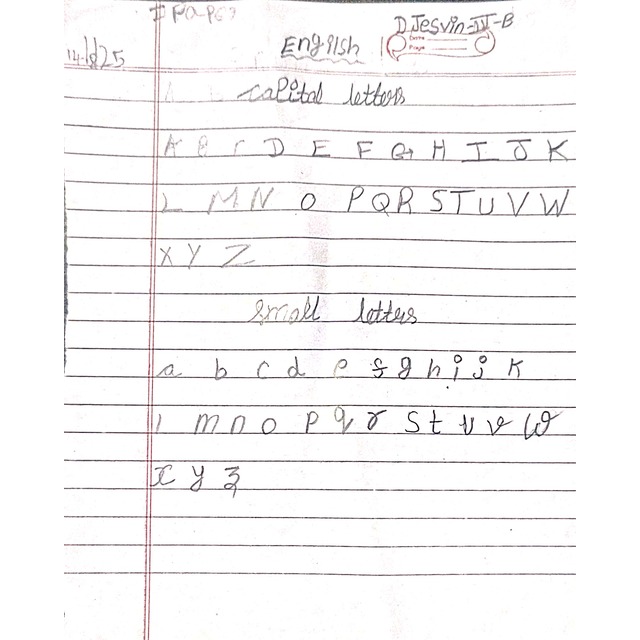 I Paper
D Jesvin-IV-B
English
Capital letters
A B C D E F G H I J K
L M N O P Q R S T U V W
X Y Z
Small letters
a b c d e f g h i j k
l m n o p q r s t u v w
x y z